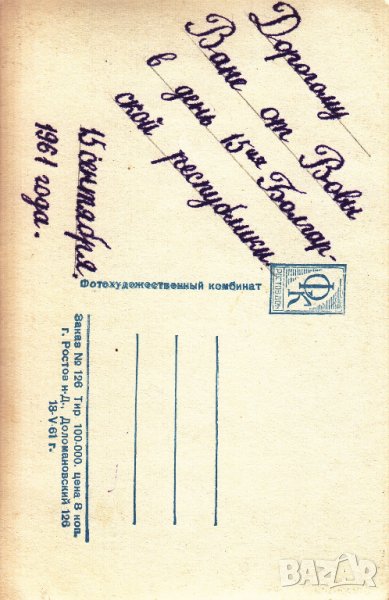 Дорогому
Ване от Вовы
в день 15ия Болгар-
ской республики
15 сентября.
1961 года.
Фотохудожественный комбинат
ФК
РОСТОВ-ДОН
Заказ № 126 Тир 100-000. цена 8 коп.
г. Ростов н-Д., Доломановский 126
18-V-61 г.
BAZAR